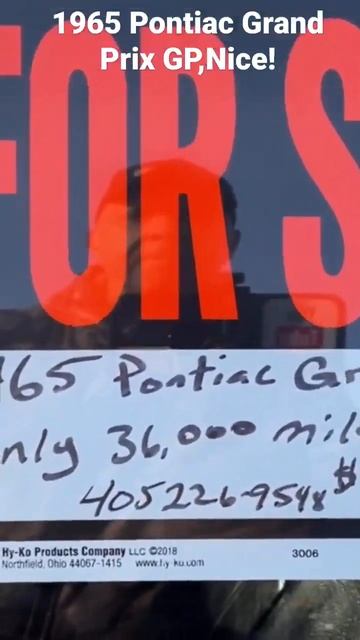 1965 Pontiac Grand
Prix GP,Nice!
FOR S
965 Pontiac Gr
nly 36,000 mil
405226-9548 $
Hy-Ko Products Company LLC ©2018
Northfield, Ohio 44067-1415 www.hy-ko.com
3006